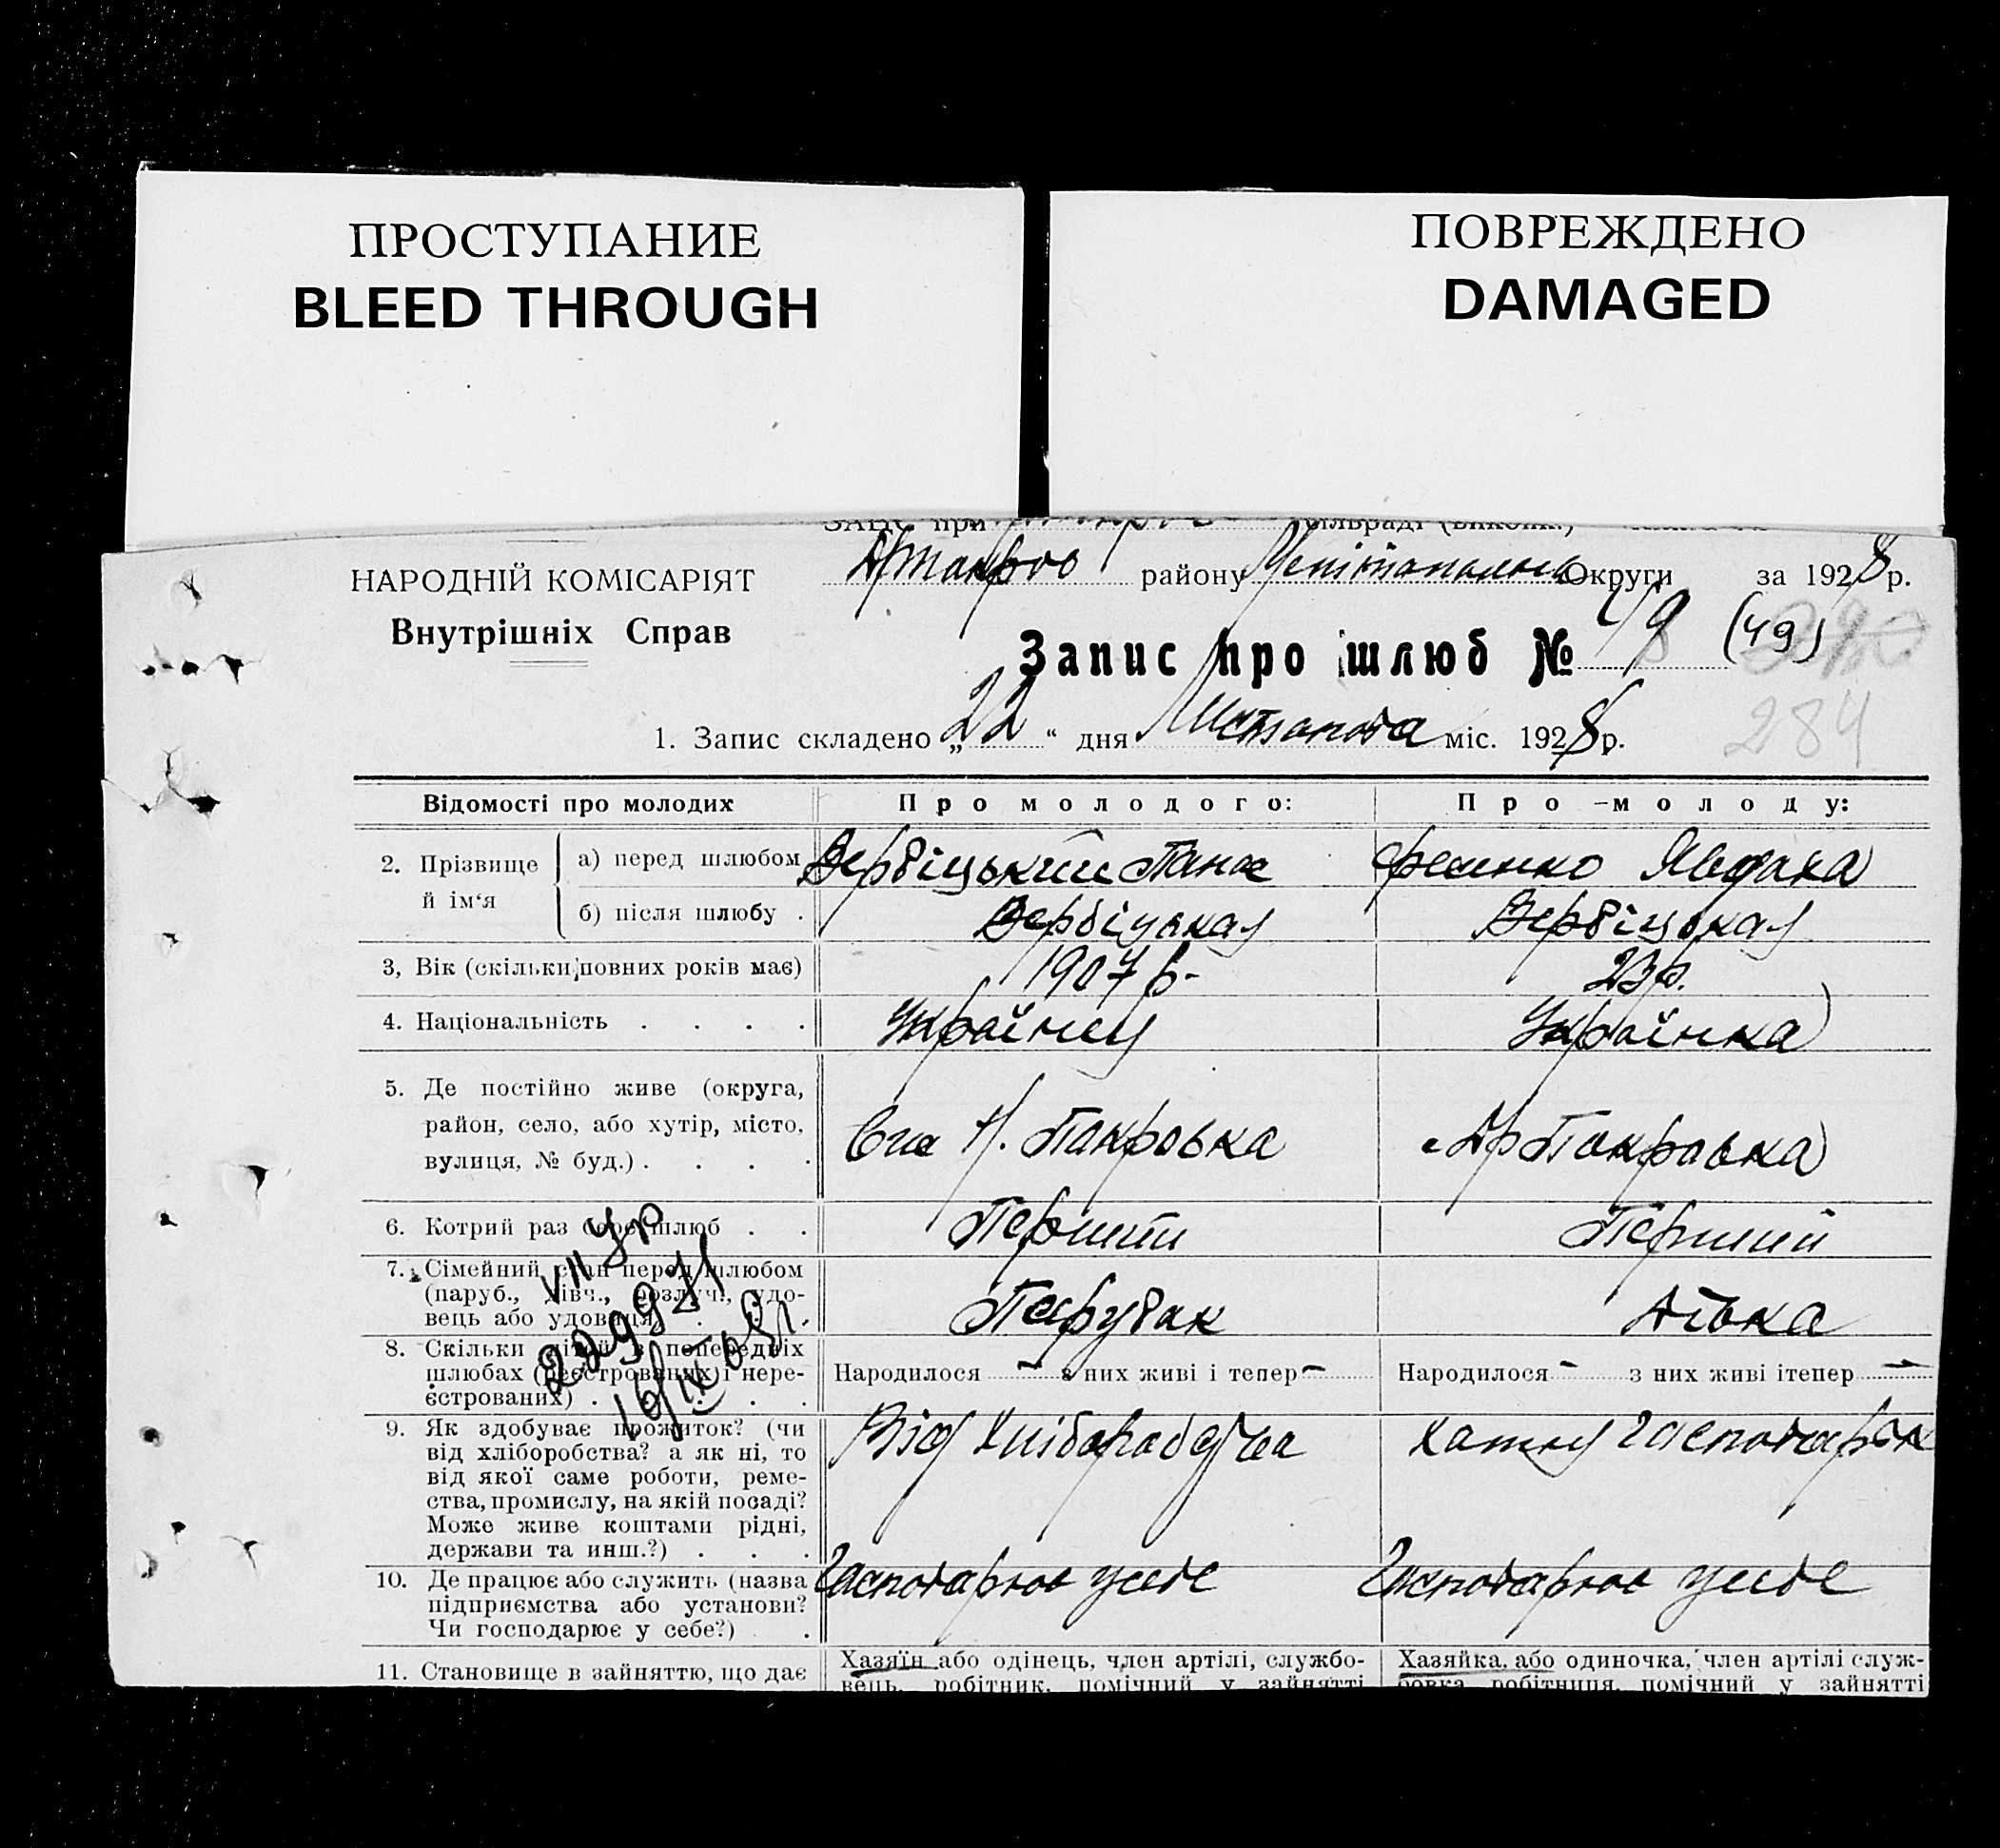 ПРОСТУПАНИЕ
BLEED THROUGH
ПОВРЕЖДЕНО
DAMAGED
ЗАЦС при
НАРОДНІЙ КОМІСАРІЯТ
Внутрішніх Справ
району Округи за 1928 р.
Запис про шлюб № 49 (49)
284
1. Запис складено „22“ дня Листопада міс. 1928 р.
Відомості про молодих
Про молодого:
Про молоду:
2. Прізвище й ім‘я
а) перед шлюбом
Вербіцький Панас
Явдоха
б) після шлюбу .
Вербіцькая
Вербіцькая
3, Вік (скільки повних років має)
1907 р.
23 р.
4. Національність . . . .
Українец
Українка
5. Де постійно живе (округа,
район, село, або хутір, місто,
вулиця, № буд.) . . . .
Н. Пакровка
Пакравка
6. Котрий раз бере шлюб . .
Перший
Перший
7. Сімейний стан перед шлюбом
(паруб., дівч., розлуч., удо-
вець або удовиця) . . .
Парубак
Дівка
8. Скільки дітей в попередніх
шлюбах (реєстрованих і нере-
єстрованих) . . . .
Народилося – з них живі і тепер –
Народилося – з них живі ітепер –
9. Як здобуває прожиток? (чи
від хліборобства? а як ні, то
від якої саме роботи, реме-
ства, промислу, на якій посаді?
Може живе коштами рідні,
держави та инш.?) . . .
Від Хліборобства
10. Де працює або служить (назва
підприємства або установи?
Чи господарює у себе?) .
Гасподарює у себе
Гасподарює у себе
11. Становище в зайняттю, що дає
Хазяїн або одінець, член артілі, службо-
вець, робітник, помічний у зайнятті
Хазяйка, або одиночка, член артілі служ-
бовка робітниця, помічний у зайнятті